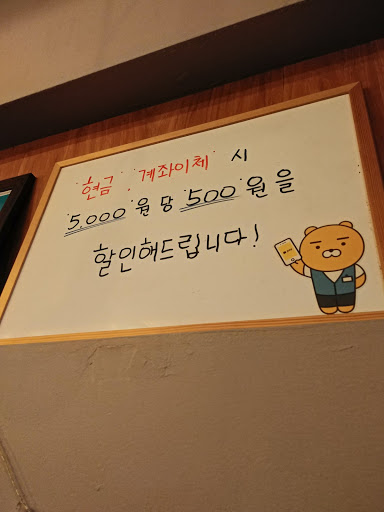 현금 · 계좌이체 시
5,000 원 당 500 원을
할인해드립니다!